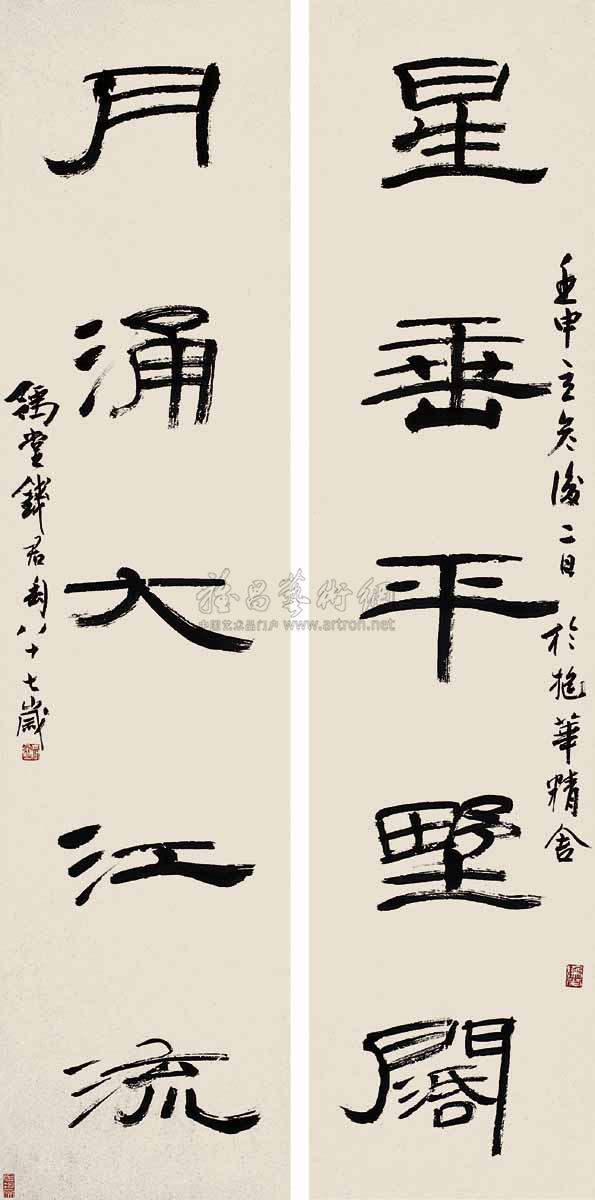 星垂平野闊
壬申立冬後二日於抱華精舍
月涌大江流
豫堂錢君匋八十七歲
雅昌藝術網
中国艺术品门户 www.artron.net